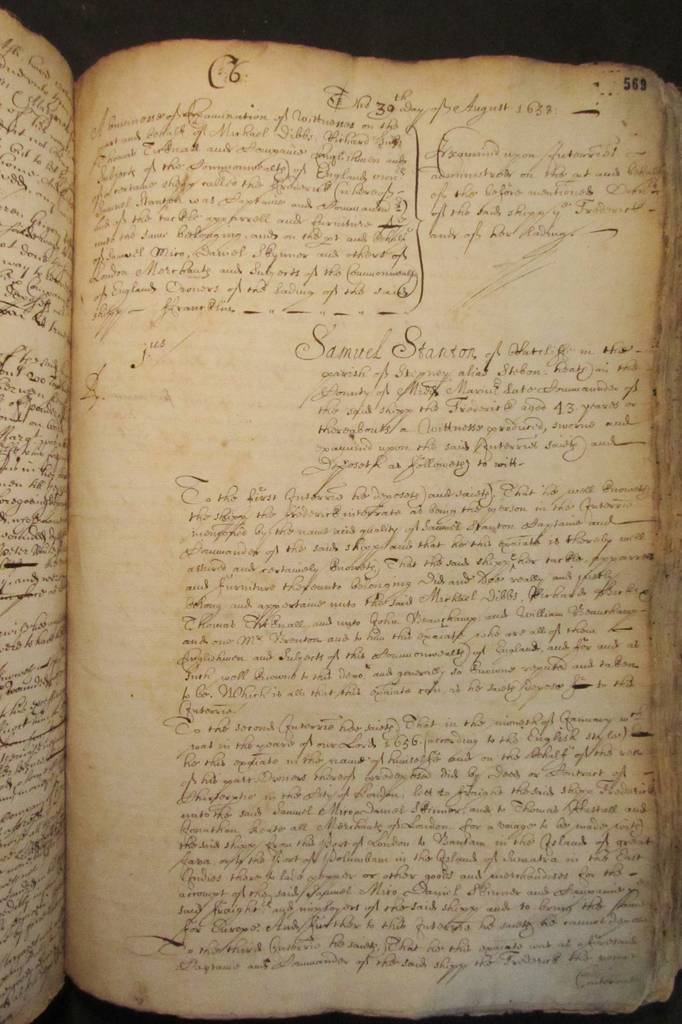 569
The 30th day of August 1658:
A Comission of Examination of Wittnesses on the
part and behalf of Michael Dibbs, Richard
Thomas Ticknall and Companie Englishmen and
Subjects of the Commonwealth of England owners
of a certaine shipp called the Frederick (whereof
Samuel Stanton was Captaine and Commander)
and of the tackle apparrell and furniture
unto the same belonging, and on the part and behalf
of Samuel Mico, Daniel Skynner and others of
London Merchants and Subjects of the Commonwealth
of England Owners of the lading of the said
shipp Francklin
Examined upon Interries
administred on the part and behalf
of the before mentioned
of the said shipp the Frederick
and of her lading.
jus
Samuel Stanton of Ratcliffe in the
parish of Stepney alias Stebon heath in the
County of Middx Mariner late Commander of
the said shipp the Frederick aged 43 yeares or
thereabouts a Wittnesse produced, sworne and
examined upon the said Interries saieth and
deposeth as followeth to witt.
To the first Interrie he deposeth and saieth, That he well knoweth
the shipp the Frederick interrate as being the person in the Interrie
mentioned by the name and quality of Samuel Stanton Captaine and
Commander of the said shipp and that he this examinate is thereby well
assured and certainely knoweth, That the said shipp, her tackle, apparrell
and furniture thereunto belonging did and doe really and justly
belong and appertaine unto the said Michael Dibbs, Richard
Thomas Ticknall, and unto John Beauchamp, and William Beauchamp
and one Mr Brenton and to him this examinate who are all of them
Englishmen and Subjects of this Commonwealth of England, and for and as
such well knowne to this depot and generally so knowne reputed and taken
to be, Which is all that this examinate can, as he saieth depose to this
Interrie.
To the second Interrie he saieth, That in the moneth of January wch
was in the yeare of our Lord 1656 (according to the English stile)
he this examinate in the name of himselfe and on the behalf of the rest
of his part Owners thereof did by deed or Contract of
Charterpartie in the Citty of London, lett to fraight the said shipp Frederick
unto the said Samuel Mico, Daniel Skinner, and to Thomas and
Jonathan all Merchants of London for a voiage to be made with
the said shipp from the Port of London to Bantam in the Island of great
Java, and the Port of in the Island of Sumatra in the East
Indies there to lade pepper or other goods and merchandizes for the
accompt of the said Samuel Mico, Daniel Skinner and Companie
said fraighters and imployers of the said shipp and to bring the same
for Europe. And further to this Interrie he saieth he cannot depose
To the third Interrie he saieth, That he this examinate was as aforesaid
Captaine and Commander of the said shipp the Frederick the